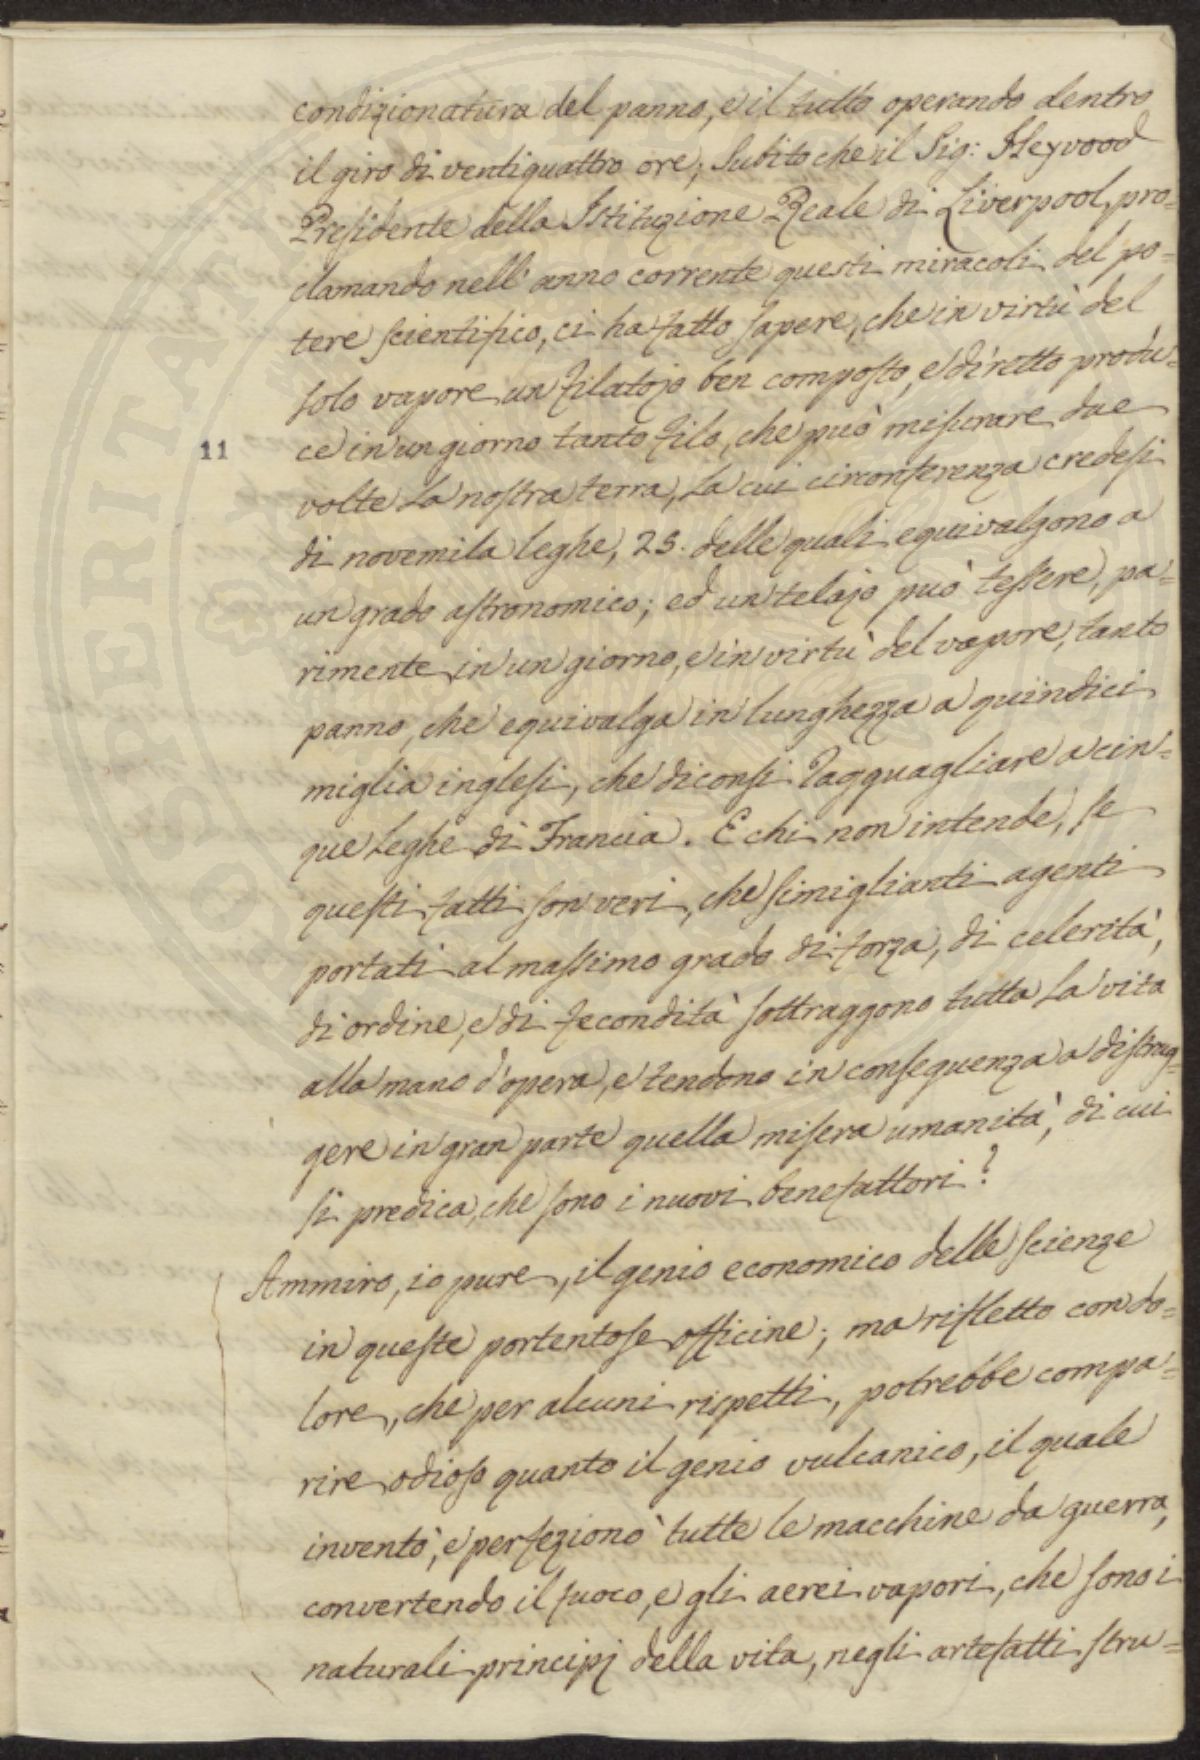 condizionatura del panno, e il tutto operando dentro
il giro di ventiquattro ore; Subitoche il Sig: Heyvood
Presidente della Istituzione Reale di Liverpool, pro=
clamando nell' anno corrente questi miracoli del po=
tere scientifico, ci ha fatto sapere, che in virtù del
solo vapore un filatojo ben composto, e diretto produ=
11 ce in un giorno tanto filo, che può misurare due
volte la nostra terra, la cui circonferenza credesi
di novemila leghe, 25. delle quali equivalgono a
un grado astronomico; ed un telajo può tessere, pa=
rimente in un giorno, e in virtù del vapore, tanto
panno, che equivalga in lunghezza a quindici
miglia inglesi, che diconsi ragguagliare a cin=
que leghe di Francia. E chi non intende, se
questi fatti son veri, che simiglianti agenti
portati al massimo grado di forza, di celerità,
di ordine, e di fecondità sottraggono tutta la vita
alla mano d'opera, e tendono in conseguenza a distrug=
gere in gran parte quella misera umanità, di cui
si predica, che sono i nuovi benefattori?
Ammiro, io pure, il genio economico delle scienze
in queste portentose officine; ma rifletto con do=
lore, che per alcuni rispetti, potrebbe compa=
rire odioso quanto il genio vulcanico, il quale
inventò, e perfezionò tutte le macchine da guerra,
convertendo il fuoco, e gli aerei vapori, che sono i
naturali principj della vita, negli artefatti stru=